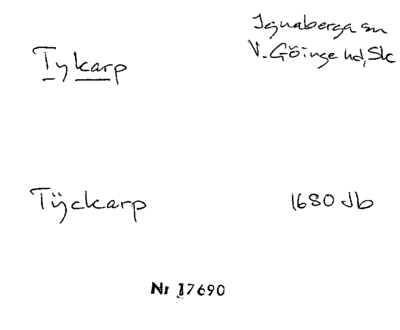 Ignaberga sn
Tykarp V. Göinge hd, Sk
Tÿckarp 1680 Jb
Nr 17690